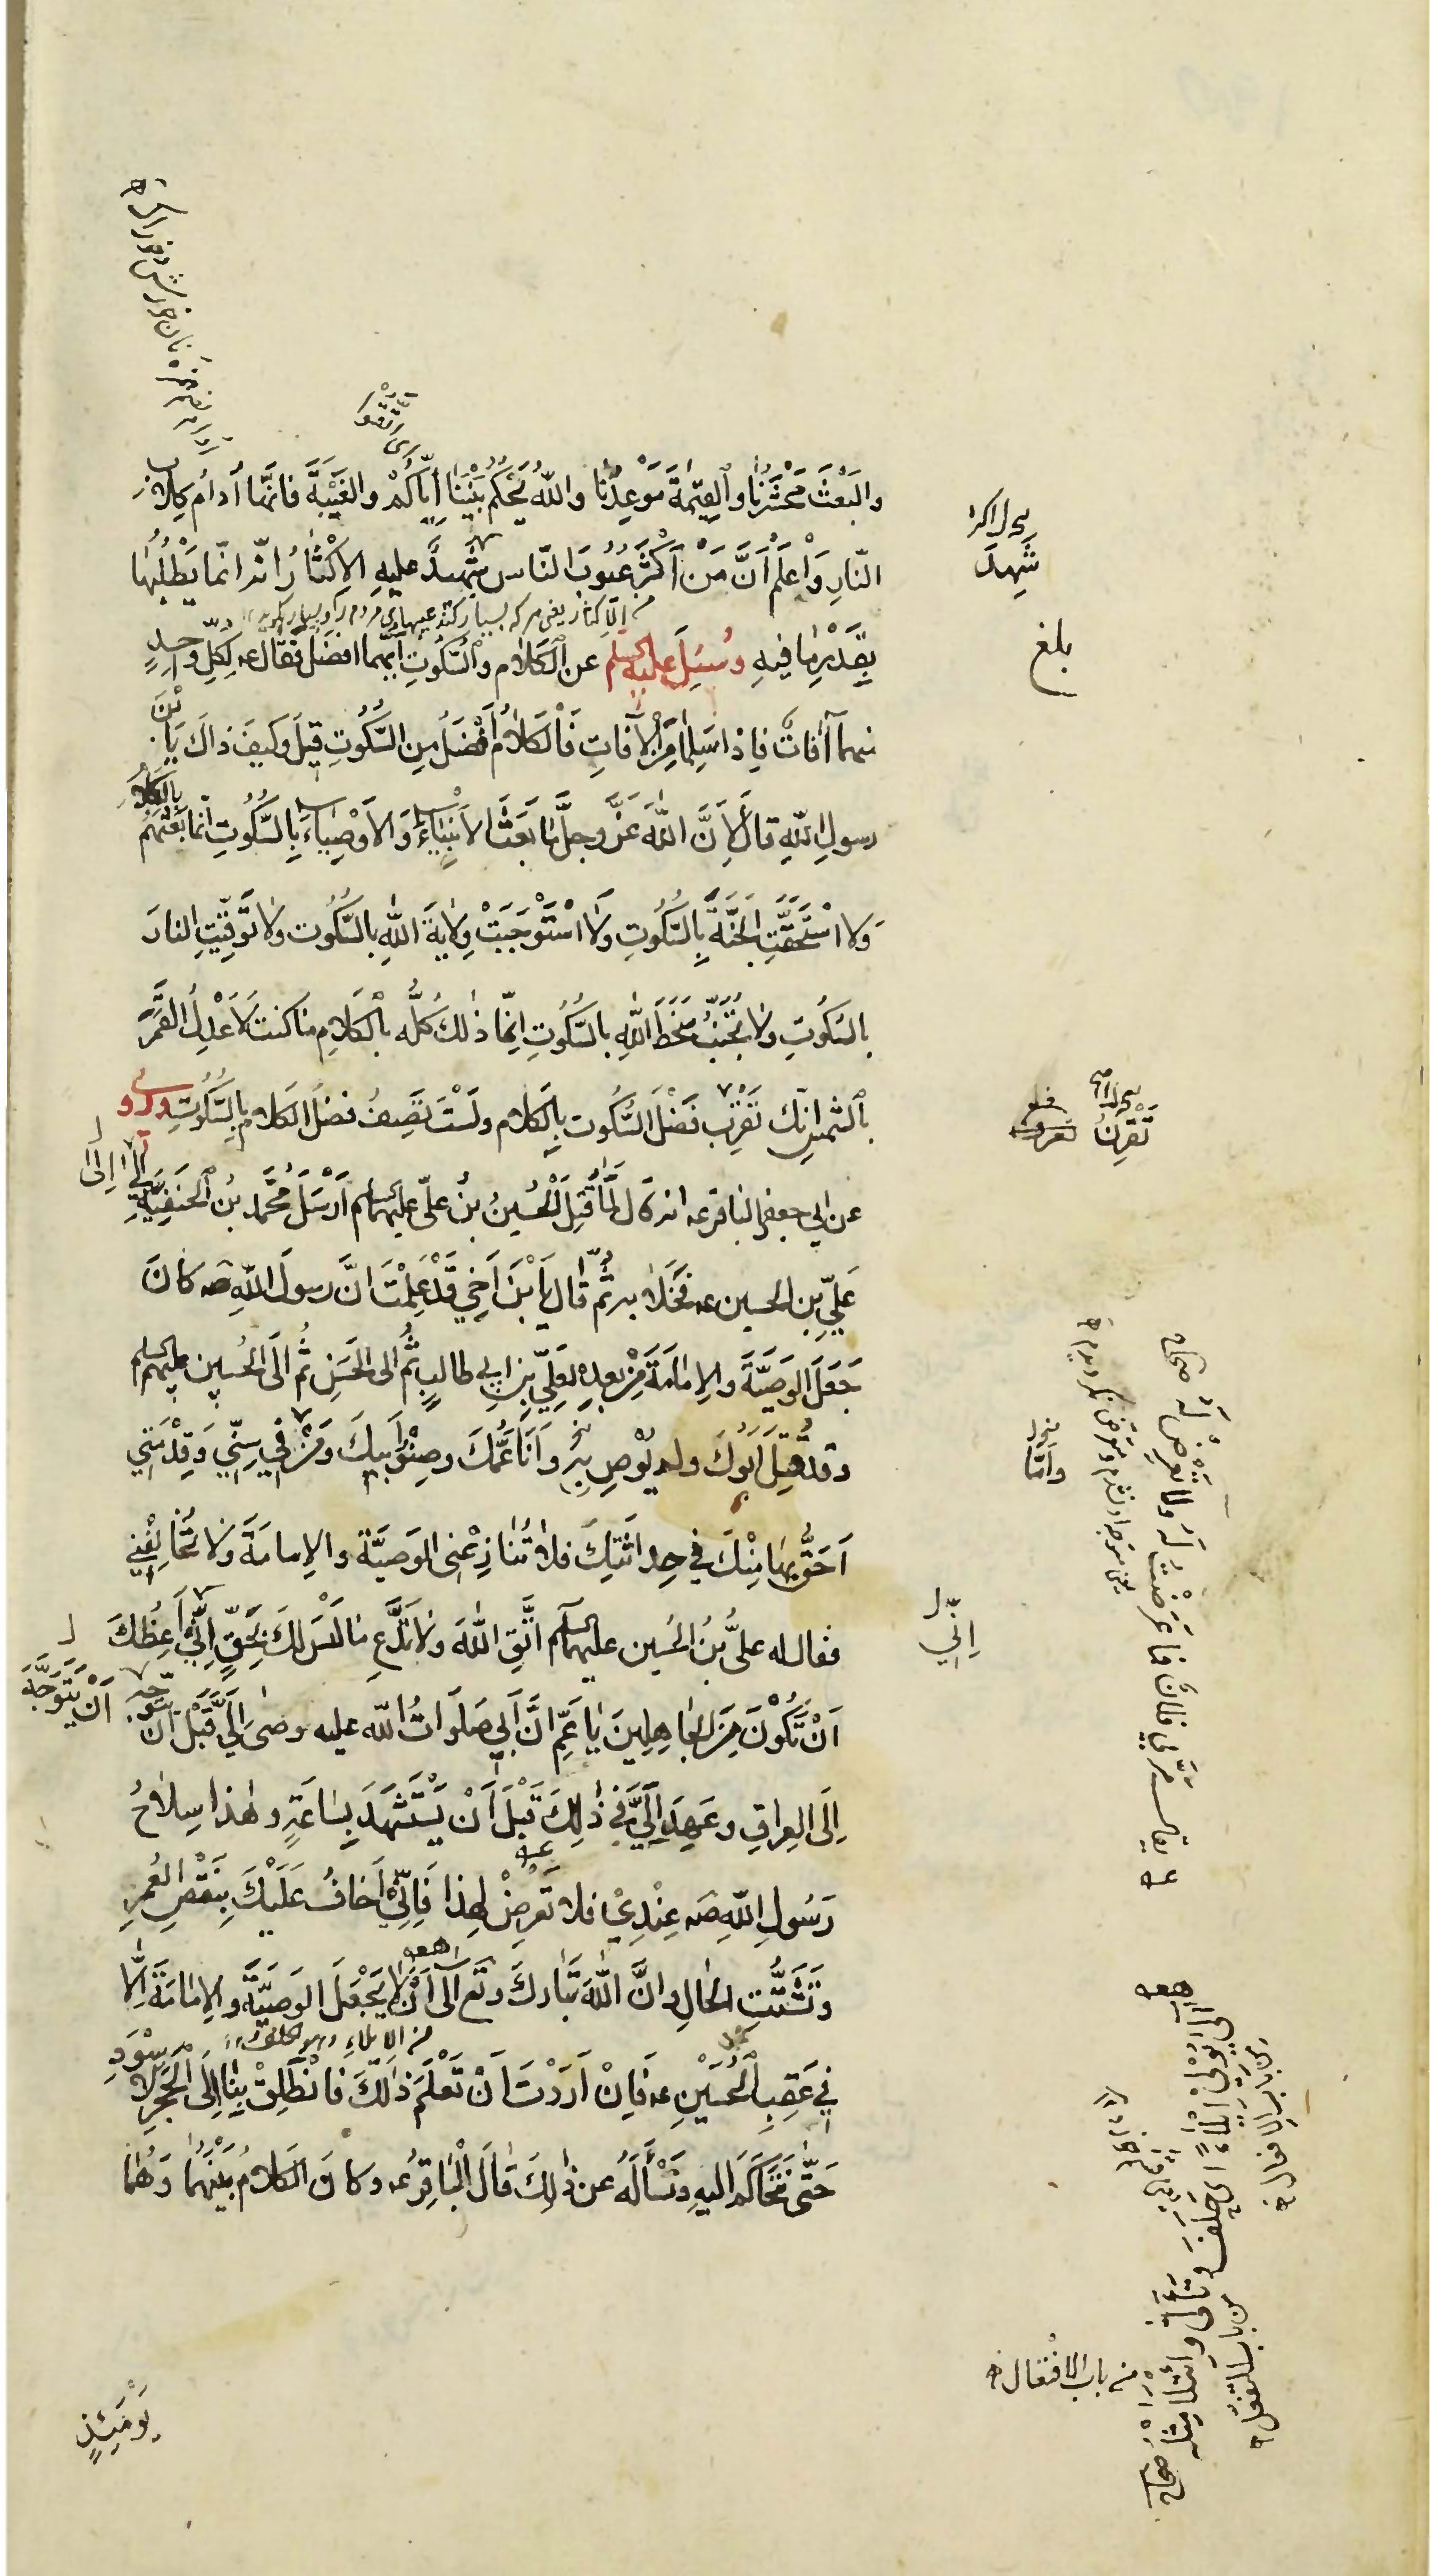 تتقو
والبَعْثَ مَحْشَرُنا والقِيٰمَةَ مَوْعِدُنا واللّٰهُ يَحْكُمُ بَيْنَنا اِيّاكُمْ والغَيْبَةَ فانّها اُدامُ كِلابِ
النّارِ وَاعْلَمْ اَنَّ مَنْ اَكْثَرَ عُيُوبَ النّاس شَهِدَ عليهِ الاِكْثارُ انّه انّما يَطْلُبُها
بِقَدْرِ ما فيهِ وسُئِلَ عليه السلم عن الكَلام والسُّكُوتِ اَيُّهما افضَلُ فقال عـ لِكُلِّ واحِدٍ
منهما آفاتٌ فاِذا سَلِما مِنَ الآفاتِ فَالكَلامُ اَفْضَلُ مِن السُّكُوتِ قيلَ وكيفَ ذاكَ يَابْنَ
رسولِ اللهِ قالَ لِاَنَّ اللّٰهَ عَزَّ وجلَّ ما بَعَثَ الاَنْبِياءَ وَالاَوْصِياءَ بِالسُّكُوتِ انّما بَعَثَهُمْ بِالكَلامِ
وَلا اسْتَحَقَّتِ الجَنَّةُ بِالسُّكُوتِ ولا اسْتَوْجَبَتْ وِلايَةَ اللهِ بالسُّكُوت ولا تَوَقَّيْتِ النارَ
بالسُكُوتِ ولا تُجُنِّبَ سَخَطُ اللهِ بالسُّكُوتِ اِنّما ذٰلكَ كُلُّه بالكَلامِ ما كنتُ لاَعْدِلَ القَمَرَ
بالشمسِ انّك تَقْرِبُ فَضْلَ السُّكُوت بِالكَلامِ ولَسْتَ تَصِفُ فضلَ الكَلام بالسُّكُوتِ وروى
عن ابي جعفر الباقر عـ انه قال لَمّا قُتِلَ الْحُسَينُ بنُ عليّ عليهما السلم اَرْسَلَ مُحَّمَد بْنُ الحَنَفِيَّةِ اِلىٰ
عَلِيِّ بنِ الحسين عـ فَخَلا به ثُمَّ قال يَابْنَ اَخي قَدْ عَلِمْتَ انَّ رسولَ اللهِ صـ كانَ
جَعَلَ الوَصِيَّةَ والاِمامَةَ مِنْ بعدِهِ لعَلِيّ بن ابي طالبٍ ثُمَّ الى الحَسَنِ ثُمَّ الَى الحُسينِ عليهم السلم
وقد قُتِلَ اَبُوكَ ولم يُوصِ به وَاَنَا عَمُّكَ وصِنْوُ اَبيكَ وَمَنْ في سِنّي وَقِدْمَتي
اَحَقُّ بِها مِنْكَ في حِداثَتِكَ فلا تُنازِعْني الوَصِيَّةَ والاِمامَةَ ولا تُخالِفْني
فقال له عليُّ بْنُ الحُسينِ عليهما السلم اتَّقِ اللهَ ولا تَدَّعِ ما ليسَ لكَ بِحَقٍّ اِنّي اَعِظُكَ
اَنْ تَكُونَ مِنَ الجاهِلينَ يا عَمّ انَّ اَبي صَلَواتُ اللّه عليه وصى اِلَيَّ قَبْلَ اَنْ يَتَوَجَّهَ
اِلَى العِراقِ وعَهِدَ اِلَيَّ في ذٰلِكَ قَبْلَ اَنْ يُسْتَشْهَدَ بِساعَةٍ وهٰذا سِلاحُ
رَسُولِ اللّهِ صـ عِنْدي فلا تَعْرِضْ لِهذا فَاِنّي اَخافُ عَلَيْكَ بِنَقْصِ العُمرِ
وتَشَتُّتِ الحالِ وانَّ اللهَ تَبارَكَ وتَعالى آلىٰ اَنْ لا يَجْعَلَ الوَصِيَّةَ والاِمامَةَ اِلّا
في عَقِبِ الحُسَيْنِ عـ فَاِنْ اَرَدْتَ اَنْ تَعْلَمَ ذٰلِكَ فانْطَلِقْ بِنا اِلَى الحَجَرِ الاَسْوَدِ
حَتّى نَتَحاكَمَ اليهِ ونَسْأَلَهُ عن ذٰلِكَ قالَ الْباقِرُ عـ وكانَ الكَلامُ بَيْنَهُما وَهُما
يَوْمَئِذٍ
شَهِدَ
بلغ
تَقْرِنُ
اِلىٰ
وَاَنَا
اِنّي
اَنْ يَتَوَجَّهَ
من الايلاء وهو الحلف
يقال مرّ بي فلان فما عَرَضْتُ لَه ولا تَعْرِضْ لَه صحاح
آلى يُولي ايلاءً اي حَلَفَ وتَأَلّى وائتلى مثله صحاح
من باب الافعال
من باب التفعل
من باب الافتعال